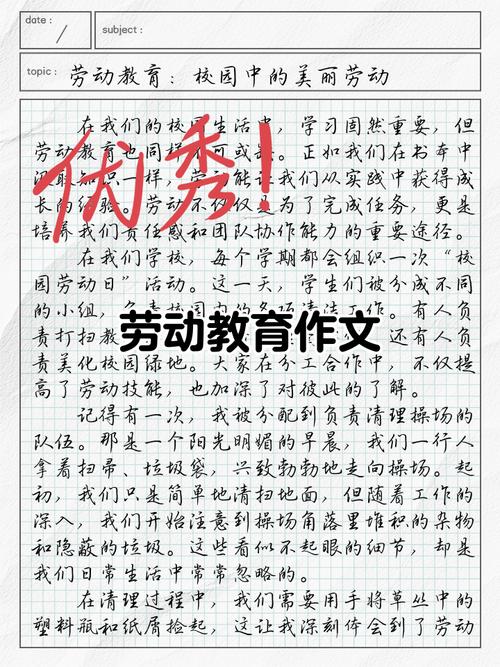 date:
subject:
topic: 劳动教育：校园中的美丽劳动
在我们的校园生活中，学习固然重要，但
劳动教育也同样不可或缺。正如我们在书本中
一样，劳动能让我们从实践中获得成
长的经验。劳动不仅仅是为了完成任务，更是
培养我们责任感和团队协作能力的重要途径。
在我们学校，每个学期都会组织一次“校
园劳动日”活动。这一天，学生们被分成不同
的小组，负责校园内的各项清洁工作。有人负
责打扫教
还有人负
劳动教育作文
责美化校园绿地。大家在分工合作中，不仅提
高了劳动技能，也加深了对彼此的了解。
记得有一次，我被分配到负责清理操场的
队伍。那是一个阳光明媚的早晨，我们一行人
拿着扫帚、垃圾袋，兴致勃勃地走向操场。起
初，我们只是简单地清扫地面，但随着工作的
深入，我们开始注意到操场角落里堆积的杂物
和隐蔽的垃圾。这些看似不起眼的细节，却是
我们日常生活中常常忽略的。
在清理过程中，我们需要用手将草丛中的
塑料瓶和纸屑捡起，这让我深刻体会到了劳动
优秀！